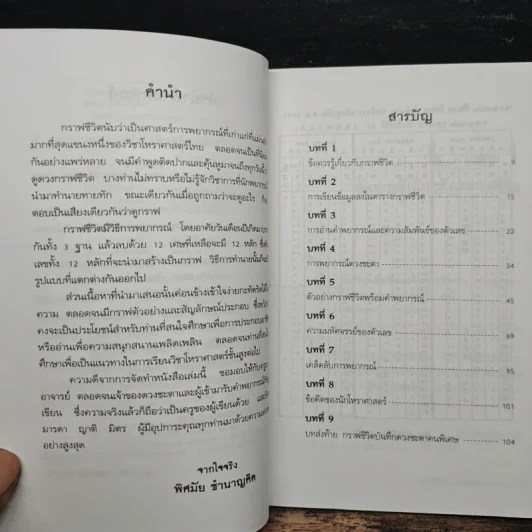 คำนำ
กราฟชีวิตนับว่าเป็นศาสตร์การพยากรณ์ที่เก่าแก่ที่แม่น
มากที่สุดแขนงหนึ่งของวิชาโหราศาสตร์ไทย ตลอดจนเป็นที่นิยม
กันอย่างแพร่หลาย จนมีคำพูดติดปากและคุ้นหูมาจนถึงทุกวันนี้
ดูดวงกราฟชีวิต บางท่านไม่ทราบหรือไม่รู้จักวิชาการที่นักพยากรณ์
นำมาทำนายทายทัก ขณะเดียวกันเมื่อถูกถามว่าจะดูอะไร ก็
ตอบเป็นเสียงเดียวกันว่าดูกราฟ
กราฟชีวิตมีวิธีการพยากรณ์ โดยอาศัยวันเดือนปีเกิดมาบวก
กันทั้ง 3 ฐาน แล้วลบด้วย 12 เศษที่เหลือจะมี 12 หลัก ซึ่ง
เลขทั้ง 12 หลักที่จะนำมาสร้างเป็นกราฟ วิธีการทำนายนั้นก็จะมี
รูปแบบที่แตกต่างกันออกไป
ส่วนเนื้อหาที่นำมาเสนอนั้นค่อนข้างเข้าใจง่ายกะทัดรัดได้ใจ
ความ ตลอดจนมีกราฟตัวอย่างและสัญลักษณ์ประกอบ ซึ่งหวังว่า
คงจะเป็นประโยชน์สำหรับท่านที่สนใจศึกษาเพื่อการประกอบอาชีพ
หรืออ่านเพื่อความสนุกสนานเพลิดเพลิน ตลอดจนท่านที่
ศึกษาเพื่อเป็นแนวทางในการเรียนวิชาโหราศาสตร์ชั้นสูงต่อไป
ความดีจากการจัดทำหนังสือเล่มนี้ ขอมอบให้กับครู
อาจารย์ ตลอดจนเจ้าของดวงชะตาและผู้เข้ามารับคำพยากรณ์
เขียน ซึ่งความจริงแล้วก็ถือว่าเป็นครูของผู้เขียนด้วย และ
มารดา ญาติ มิตร ผู้มีอุปการะคุณทุกท่านมาด้วยความเคารพ
อย่างสูงสุด
จากใจจริง
พิศมัย ชำนาญคิด
สารบัญ
บทที่ 1
ข้อควรรู้เกี่ยวกับกราฟชีวิต 9
บทที่ 2
การเขียนข้อมูลลงในตารางกราฟชีวิต 15
บทที่ 3
การอ่านคำพยากรณ์และความสัมพันธ์ของตัวเลข 22
บทที่ 4
การพยากรณ์ดวงชะตา 34
บทที่ 5
ตัวอย่างกราฟชีวิตพร้อมคำพยากรณ์ 45
บทที่ 6
ความมหัศจรรย์ของตัวเลข 69
บทที่ 7
เคล็ดลับการพยากรณ์ 95
บทที่ 8
ข้อคิดของนักโหราศาสตร์ 101
บทที่ 9
บทส่งท้าย กราฟชีวิตบันทึกดวงชะตาคนพิเศษ 104